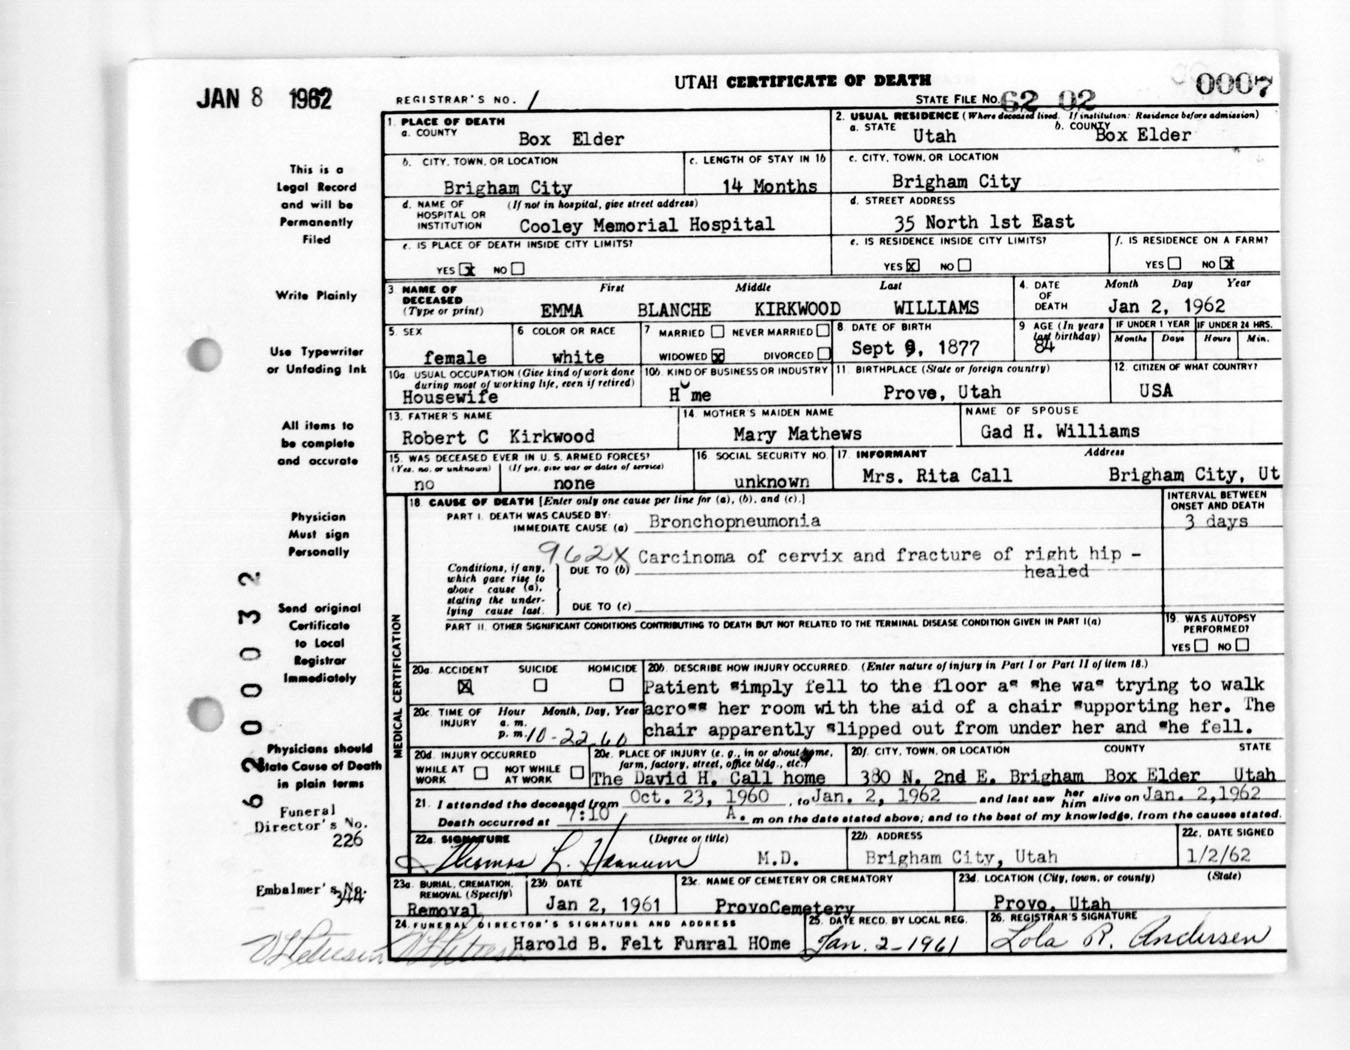 JAN 8 1962
UTAH CERTIFICATE OF DEATH
0007
REGISTRAR'S NO. 1
STATE FILE NO. 62 02
1. PLACE OF DEATH
a. COUNTY
Box Elder
2. USUAL RESIDENCE (Where deceased lived. If institution: Residence before admission)
a. STATE
Utah
b. COUNTY
Box Elder
b. CITY, TOWN, OR LOCATION
Brigham City
c. LENGTH OF STAY IN 1b
14 Months
c. CITY, TOWN, OR LOCATION
Brigham City
d. NAME OF HOSPITAL OR INSTITUTION
(If not in hospital, give street address)
Cooley Memorial Hospital
d. STREET ADDRESS
35 North 1st East
e. IS PLACE OF DEATH INSIDE CITY LIMITS?
YES x NO
e. IS RESIDENCE INSIDE CITY LIMITS?
YES x NO
f. IS RESIDENCE ON A FARM?
YES NO x
3. NAME OF DECEASED (Type or print)
First Middle Last
EMMA BLANCHE KIRKWOOD WILLIAMS
4. DATE OF DEATH
Month Day Year
Jan 2, 1962
5. SEX
female
6 COLOR OR RACE
white
7 MARRIED NEVER MARRIED
WIDOWED x DIVORCED
8 DATE OF BIRTH
Sept 9, 1877
9 AGE (In years last birthday)
84
IF UNDER 1 YEAR
Months Days
IF UNDER 24 HRS.
Hours Min.
10a USUAL OCCUPATION (Give kind of work done during most of working life, even if retired)
Housewife
10b. KIND OF BUSINESS OR INDUSTRY
Home
11. BIRTHPLACE (State or foreign country)
Provo, Utah
12. CITIZEN OF WHAT COUNTRY?
USA
13. FATHER'S NAME
Robert C Kirkwood
14 MOTHER'S MAIDEN NAME
Mary Mathews
NAME OF SPOUSE
Gad H. Williams
15. WAS DECEASED EVER IN U.S. ARMED FORCES?
(Yes, no, or unknown) (If yes, give war or dates of service)
no none
16 SOCIAL SECURITY NO.
unknown
17. INFORMANT Address
Mrs. Rita Call Brigham City, Ut
MEDICAL CERTIFICATION
18 CAUSE OF DEATH [Enter only one cause per line for (a), (b), and (c).]
INTERVAL BETWEEN ONSET AND DEATH
PART I. DEATH WAS CAUSED BY:
IMMEDIATE CAUSE (a) Bronchopneumonia
3 days
962X
Conditions, if any, which gave rise to above cause (a), stating the underlying cause last.
DUE TO (b) Carcinoma of cervix and fracture of right hip - healed
DUE TO (c)
PART II. OTHER SIGNIFICANT CONDITIONS CONTRIBUTING TO DEATH BUT NOT RELATED TO THE TERMINAL DISEASE CONDITION GIVEN IN PART I(a)
19. WAS AUTOPSY PERFORMED?
YES NO
20a. ACCIDENT SUICIDE HOMICIDE
x
20b. DESCRIBE HOW INJURY OCCURRED. (Enter nature of injury in Part I or Part II of item 18.)
Patient simply fell to the floor as she was trying to walk
across her room with the aid of a chair supporting her. The
chair apparently slipped out from under her and she fell.
20c. TIME OF INJURY
Hour Month, Day, Year
a. m.
p. m. 10-22-60
20d. INJURY OCCURRED
WHILE AT WORK NOT WHILE AT WORK
20e. PLACE OF INJURY (e. g., in or about home, farm, factory, street, office bldg., etc.)
The David H. Call home
20f. CITY, TOWN, OR LOCATION COUNTY STATE
380 N. 2nd E. Brigham Box Elder Utah
21. I attended the deceased from Oct. 23, 1960, to Jan. 2, 1962 and last saw her him alive on Jan. 2, 1962
Death occurred at 7:10 A. m on the date stated above; and to the best of my knowledge, from the causes stated.
22a. SIGNATURE (Degree or title)
Thomas L. Hannum M.D.
22b. ADDRESS
Brigham City, Utah
22c. DATE SIGNED
1/2/62
23a. BURIAL, CREMATION, REMOVAL (Specify)
Removal
23b. DATE
Jan 2, 1961
23c. NAME OF CEMETERY OR CREMATORY
ProvoCemetery
23d. LOCATION (City, town, or county) (State)
Provo, Utah
24. FUNERAL DIRECTOR'S SIGNATURE AND ADDRESS
Harold B. Felt Funral HOme
25. DATE RECD. BY LOCAL REG.
Jan. 2-1961
26. REGISTRAR'S SIGNATURE
Lola R. Andersen
This is a
Legal Record
and will be
Permanently
Filed
Write Plainly
Use Typewriter
or Unfading Ink
All items to
be complete
and accurate
Physician
Must sign
Personally
Send original
Certificate
to Local
Registrar
Immediately
Physicians should
State Cause of Death
in plain terms
62 00032
Funeral
Director's No.
226
Embalmer's No.
344